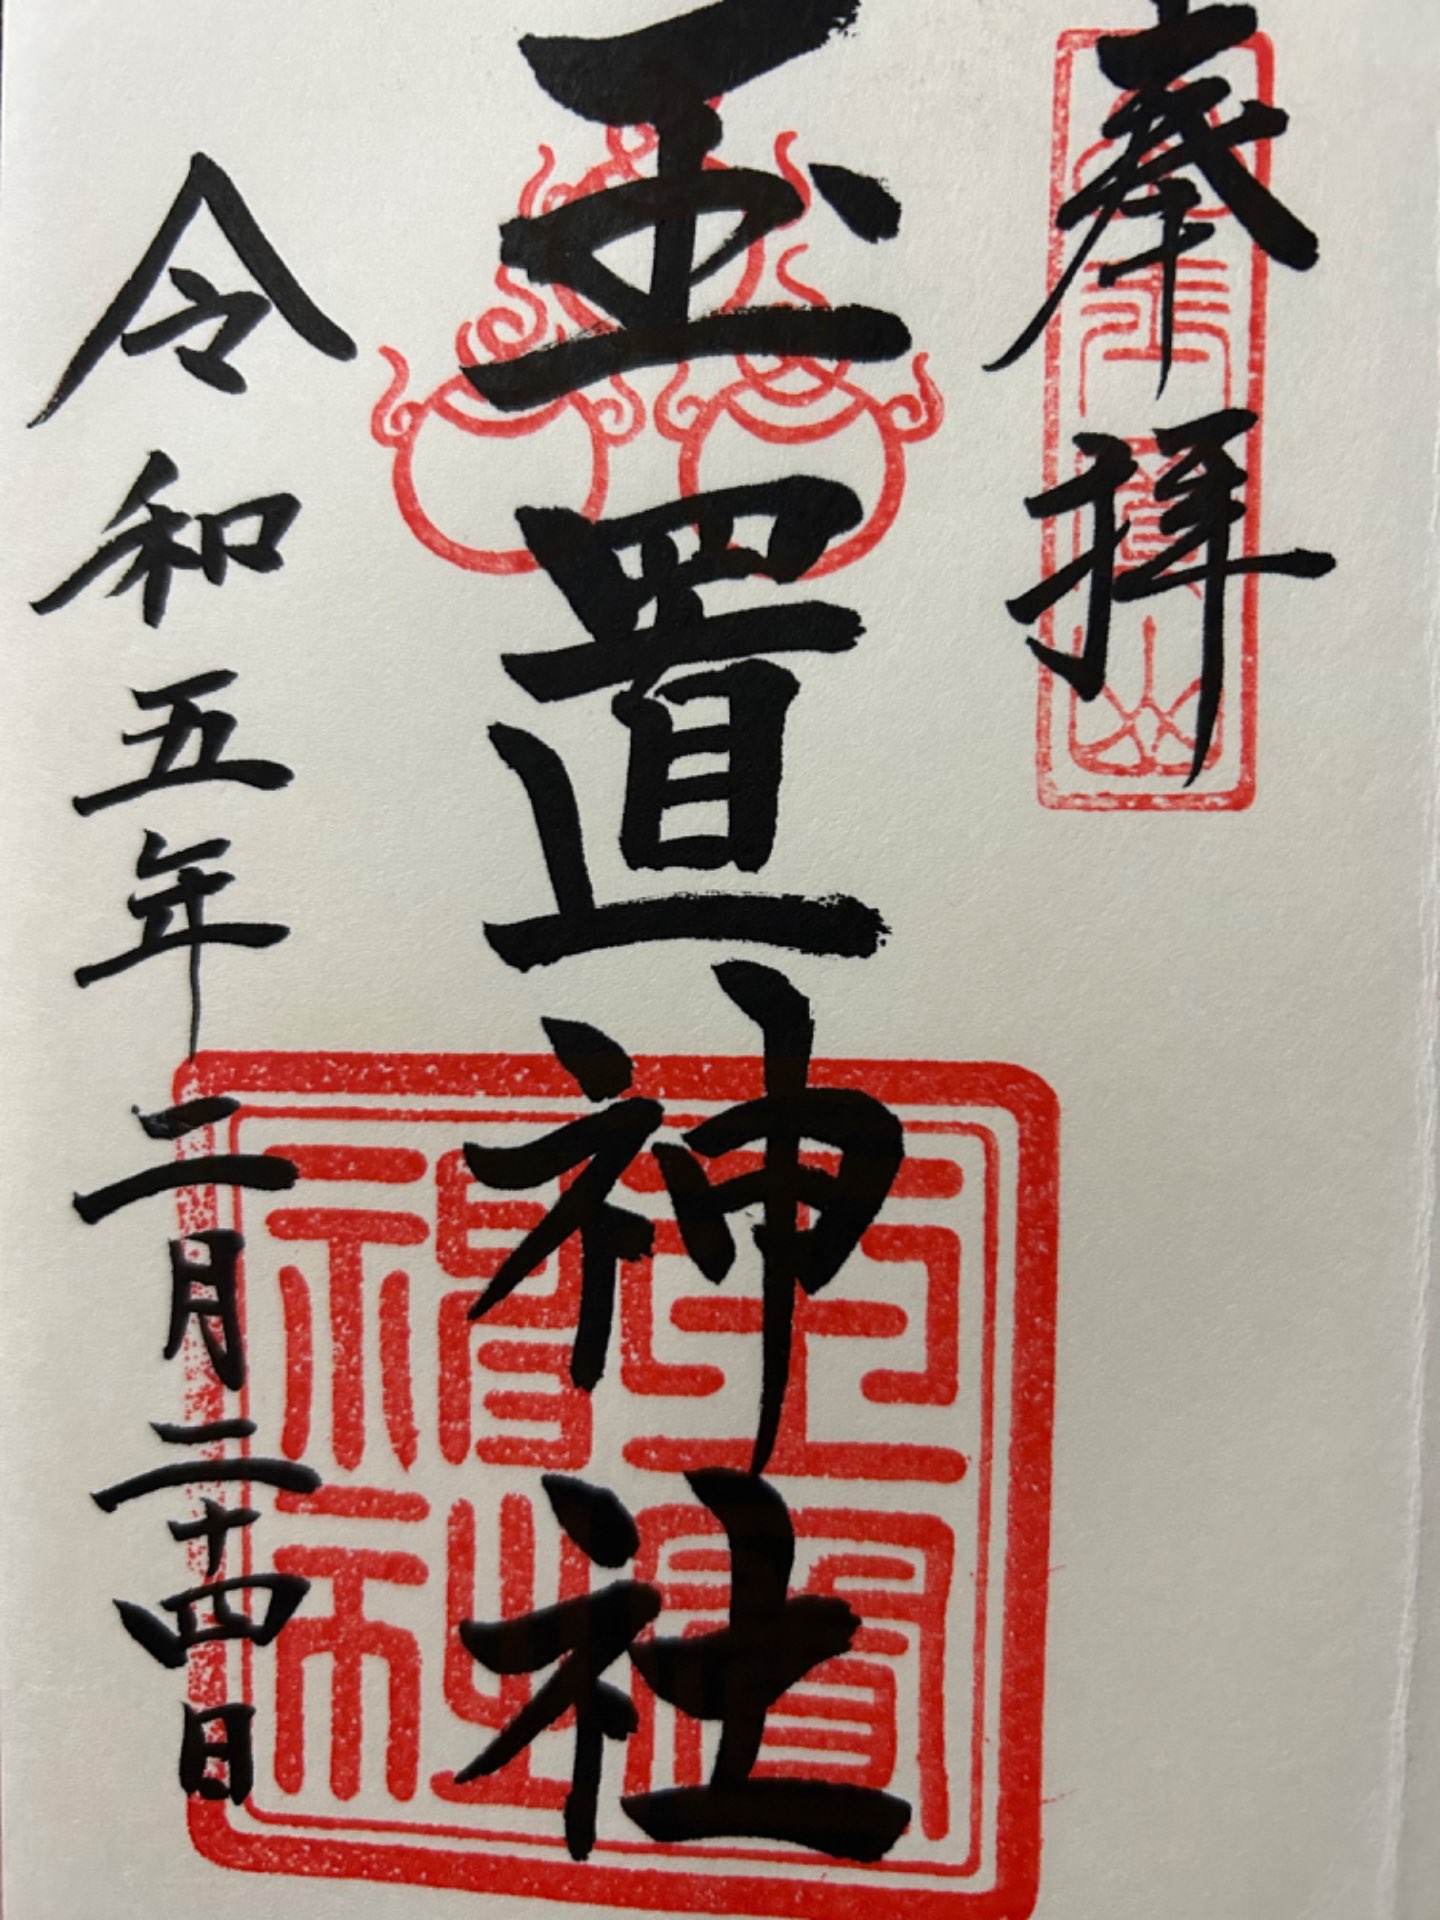 奉拝
玉置神社
令和五年二月二十四日
玉置神社